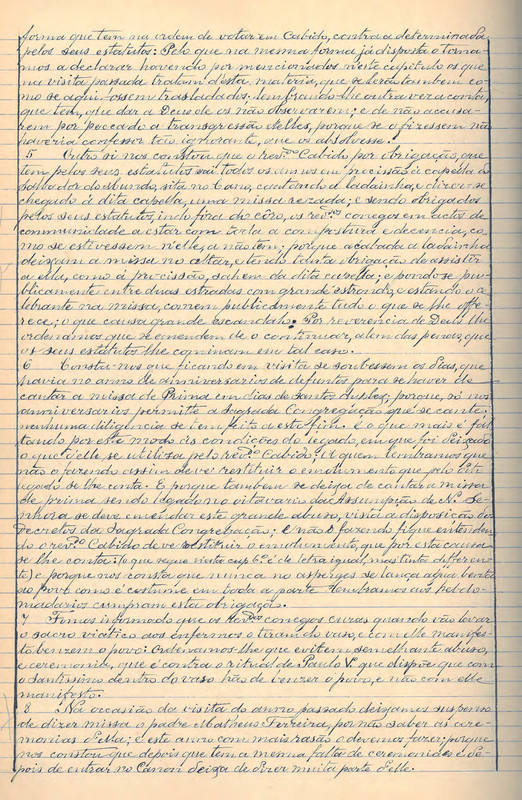 forma que tem na ordem de votar em Cabido, contra a determinada
pelos seus estatutos: Pelo que na mesma forma já disposta o torna
mos a declarar havendo por mencionados n'este capitulo os que
na visita passada tratam d'esta materia, que se lerão tambem co-
mo se aqui fossem trasladados: lembrando-lhe outra vez a conta,
que tem, que dar a Deus de os não observarem; e de não accusa-
rem por peccado a transgressão d'elles, porque se o fizessem não
haveria confessor tão ignorante, que os absolvesse.
5 Outro si nos constou que o revdo Cabido por obrigação, que
tem pelos seus estatutos sai todos os annos em procissão á capella do
Salvador do Mundo, sita no Cano, cantando a ladainha, e dizer-se
chegado á dita capella, uma missa rezada; e sendo obrigados
pelos seus estatutos, indo fóra do côro, os revdos conegos em actos de
communidade a estar com toda a compostura e decencia, co-
mo se estivessem n'elle, a não tem; porque acabada a ladainha
deixam a missa no altar, e tendo tanta obrigação de assistir
a ella, como á procissão, sahem da dita capella; e pondo-se pu-
blicamente entre duas estradas com grande estrondo, e estando o ce-
lebrante na missa, comem publicamente tudo o que se lhe offe-
rece; o que causa grande escandalo. Por reverencia de Deus lhe
ordenamos que se emendem de o continuar, alem das penas, que
os seus estatutos lhe cominam em tal caso.
6 Consta-nos que ficando em visita se soubessem os dias, que
havia no anno de anniversarios de defuntos para se haver de
cantar a missa de Prima em dias de Santos duplex; porque, só nos
anniversarios permitte a Sagrada Congregação que se cante;
nenhuma diligencia se tem feito a este fim. É o que mais é fal
tando por este modo ás condições do legado, em que foi deixado
o que d'elle se utilisa pelo revdo Cabido: A quem lembramos que
não o fazendo assim deve restituir o emolumento que pelo tal
legado se lhe conta. E porque tambem se deixa de cantar a missa
de prima sendo legado no oitavario da Assumpção de Na Se-
nhora se deve emendar este grande abuso, vista a disposição dos
Decretos da Sagrada Congregação; E não o fazendo fique entenden
do o revdo Cabido deve restituir o emolumento, que por esta causa
se lhe conta: (o que segue n'este cap. 6º é de letra igual, mas tinta differen-
te) e porque nos consta que nunca no asperges se lança agua benta
ao povo como é costume em toda a parte lembramos aos hebdo-
madarios cumpram esta obrigação.
7 Fomos informado que os Revdos conegos curas quando vão levar
o sacro viatico aos enfermos o tiram do vaso, e com elle manifes-
to benzem o povo: Ordenamos-lhe que evitem semelhante abuso,
e ceremonia, que é contra o ritual de Paulo Vº que dispõe que com
o Santissimo dentro do vaso hão de benzer o povo, e não com elle
manifesto.
8 Na occasião da visita do anno passado deixamos suspenso
de dizer missa o padre Matheus Ferreira, por não saber as cere-
monias d'ella; e este anno com mais rasão o devemos fazer; porque
nos constou que depois que tem a mesma falta de ceremonias e de-
pois de entrar no Canon deixa de dizer muita parte d'elle.